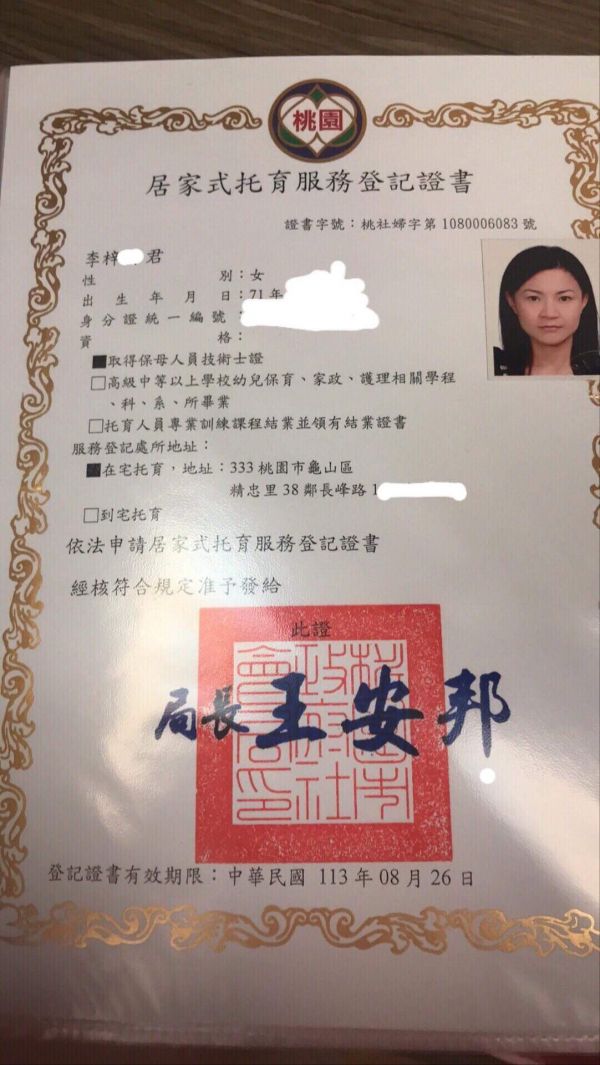 桃園
居家式托育服務登記證書
證書字號：桃社婦字第 1080006083 號
李梓 君
性 別：女
出生年月日：71 年
身分證統一編號：
資 格：
■取得保母人員技術士證
□高級中等以上學校幼兒保育、家政、護理相關學程
、科、系、所畢業
□托育人員專業訓練課程結業並領有結業證書
服務登記處所地址：
■在宅托育，地址：333 桃園市龜山區
精忠里 38 鄰長峰路 1
□到宅托育
依法申請居家式托育服務登記證書
經核符合規定准予發給
此證
桃園市政府社會局印
局長王安邦
登記證書有效期限：中華民國 113 年 08 月 26 日